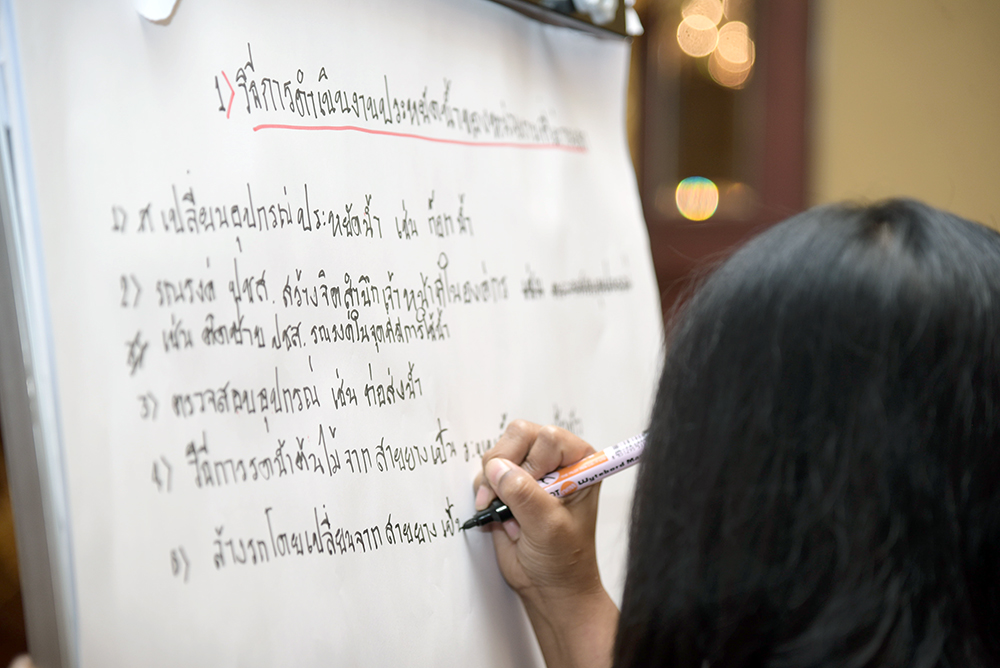 1) วิธีการดำเนินงานประหยัดน้ำของหน่วยงาน
1) เปลี่ยนอุปกรณ์ประหยัดน้ำ เช่น ก๊อกน้ำ
2) รณรงค์ ปชส. สร้างจิตสำนึก เจ้าหน้าที่ในองค์กร
เช่น ติดป้าย ปชส. รณรงค์ในจุดที่มีการใช้น้ำ
3) ตรวจสอบอุปกรณ์ เช่น ท่อส่งน้ำ
4) วิธีการรดน้ำต้นไม้ จากสายยางเป็น
5) ล้างรถโดยเปลี่ยนจากสายยาง เป็น